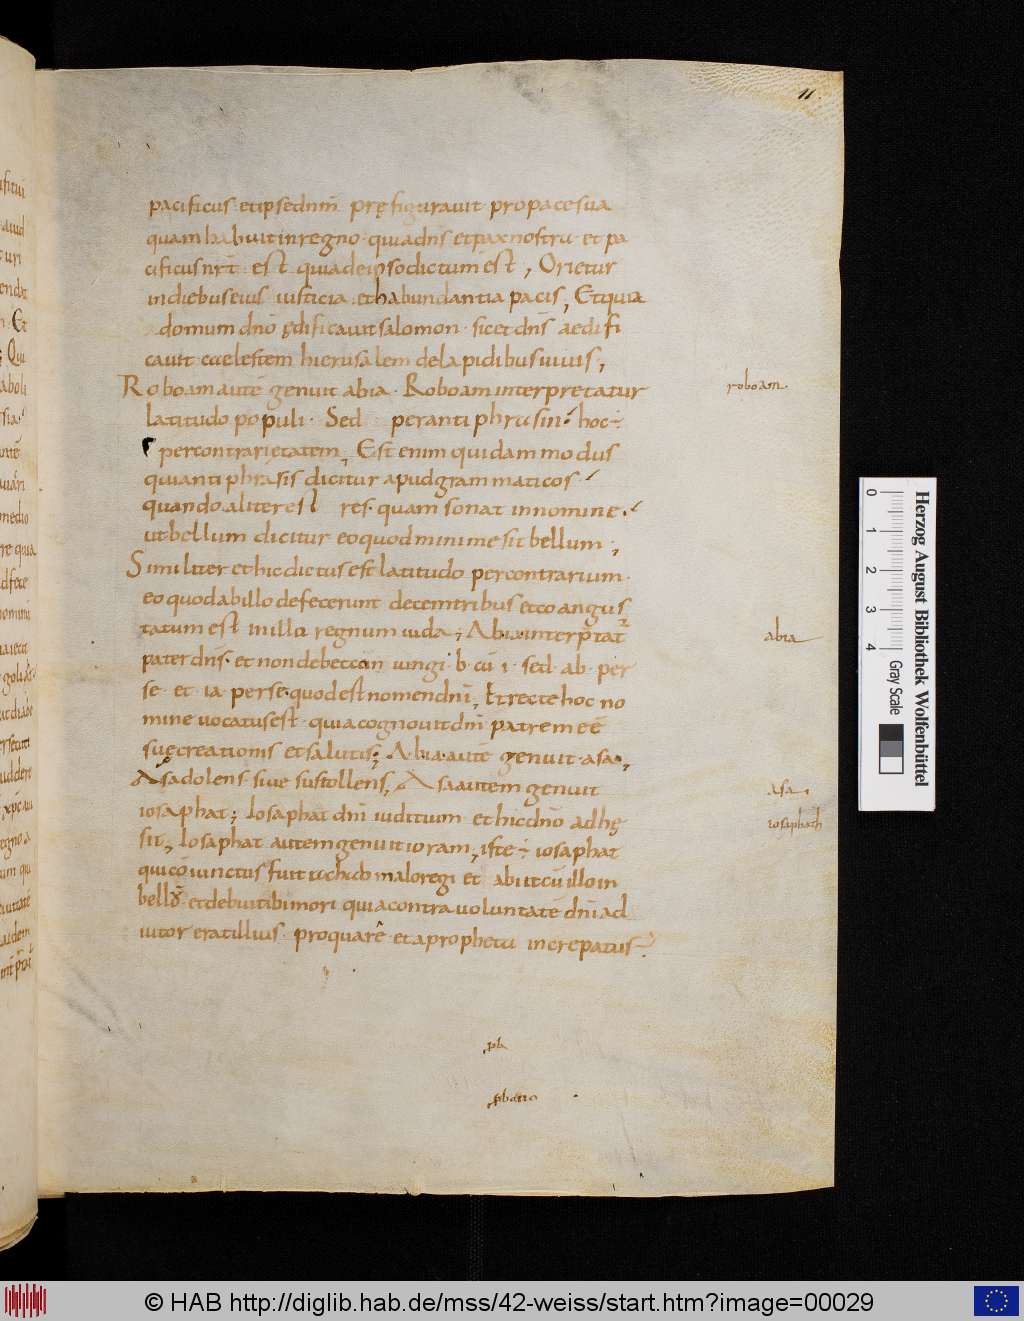 11.
pacificus · et ipse dnm̄ pręfigurauit · pro pace sua
quam habuit in regno · quia dn̄s et pax nostra · et pa
cificus nr̄ · est quia de ipso dictum est, Orietur
in diebus eius iusticia · et habundantia pacis, Et quia
domum dnō ędificauit salomon · sic et dn̄s aedifi
cauit caelestem hierusalem de lapidibus uiuis,
Roboam autē genuit abia · Roboam interpretatur
roboam.
latitudo populi · Sed per antiphrasin · hoc ÷
per contrarietatem, Est enim quidam modus
qui antiphrasis dicitur apud grammaticos
quando aliter est res · quam sonat in nomine ·
ut bellum dicitur eo quod minime sit bellum ;
Similiter et hic dictus est latitudo per contrarium ·
eo quod ab illo defecerunt decem tribus et coangus
tatum est in illo regnum iuda ; Abia interp̄tat̄
abia
pater dn̄s · et non debet can iungi · b · cū · i · sed · ab · per
se · et · ia · per se · quod est nomen dn̄i, Et recte hoc no
mine uocatus est · quia cognouit dn̄m patrem eē
suę creationis et salutis ; Abia autē genuit · asa ·,
Asa dolens siue sustollens, Asa autem genuit
asa ·
iosaphat ; Iosaphat dn̄i iuditium · et hic dn̄o adhę
iosaphath
sit, Iosaphat autem genuit ioram, iste ÷ iosaphat
qui cōiunctus fuit achab malo regi et abiit cū illo in
bellū · et debuit ibi mori quia contra uoluntatē dn̄i ad
iutor erat illius · pro qua rē · et a propheta increpatus
Herzog August Bibliothek Wolfenbüttel
0 1 2 3 4 Gray Scale
© HAB http://diglib.hab.de/mss/42-weiss/start.htm?image=00029